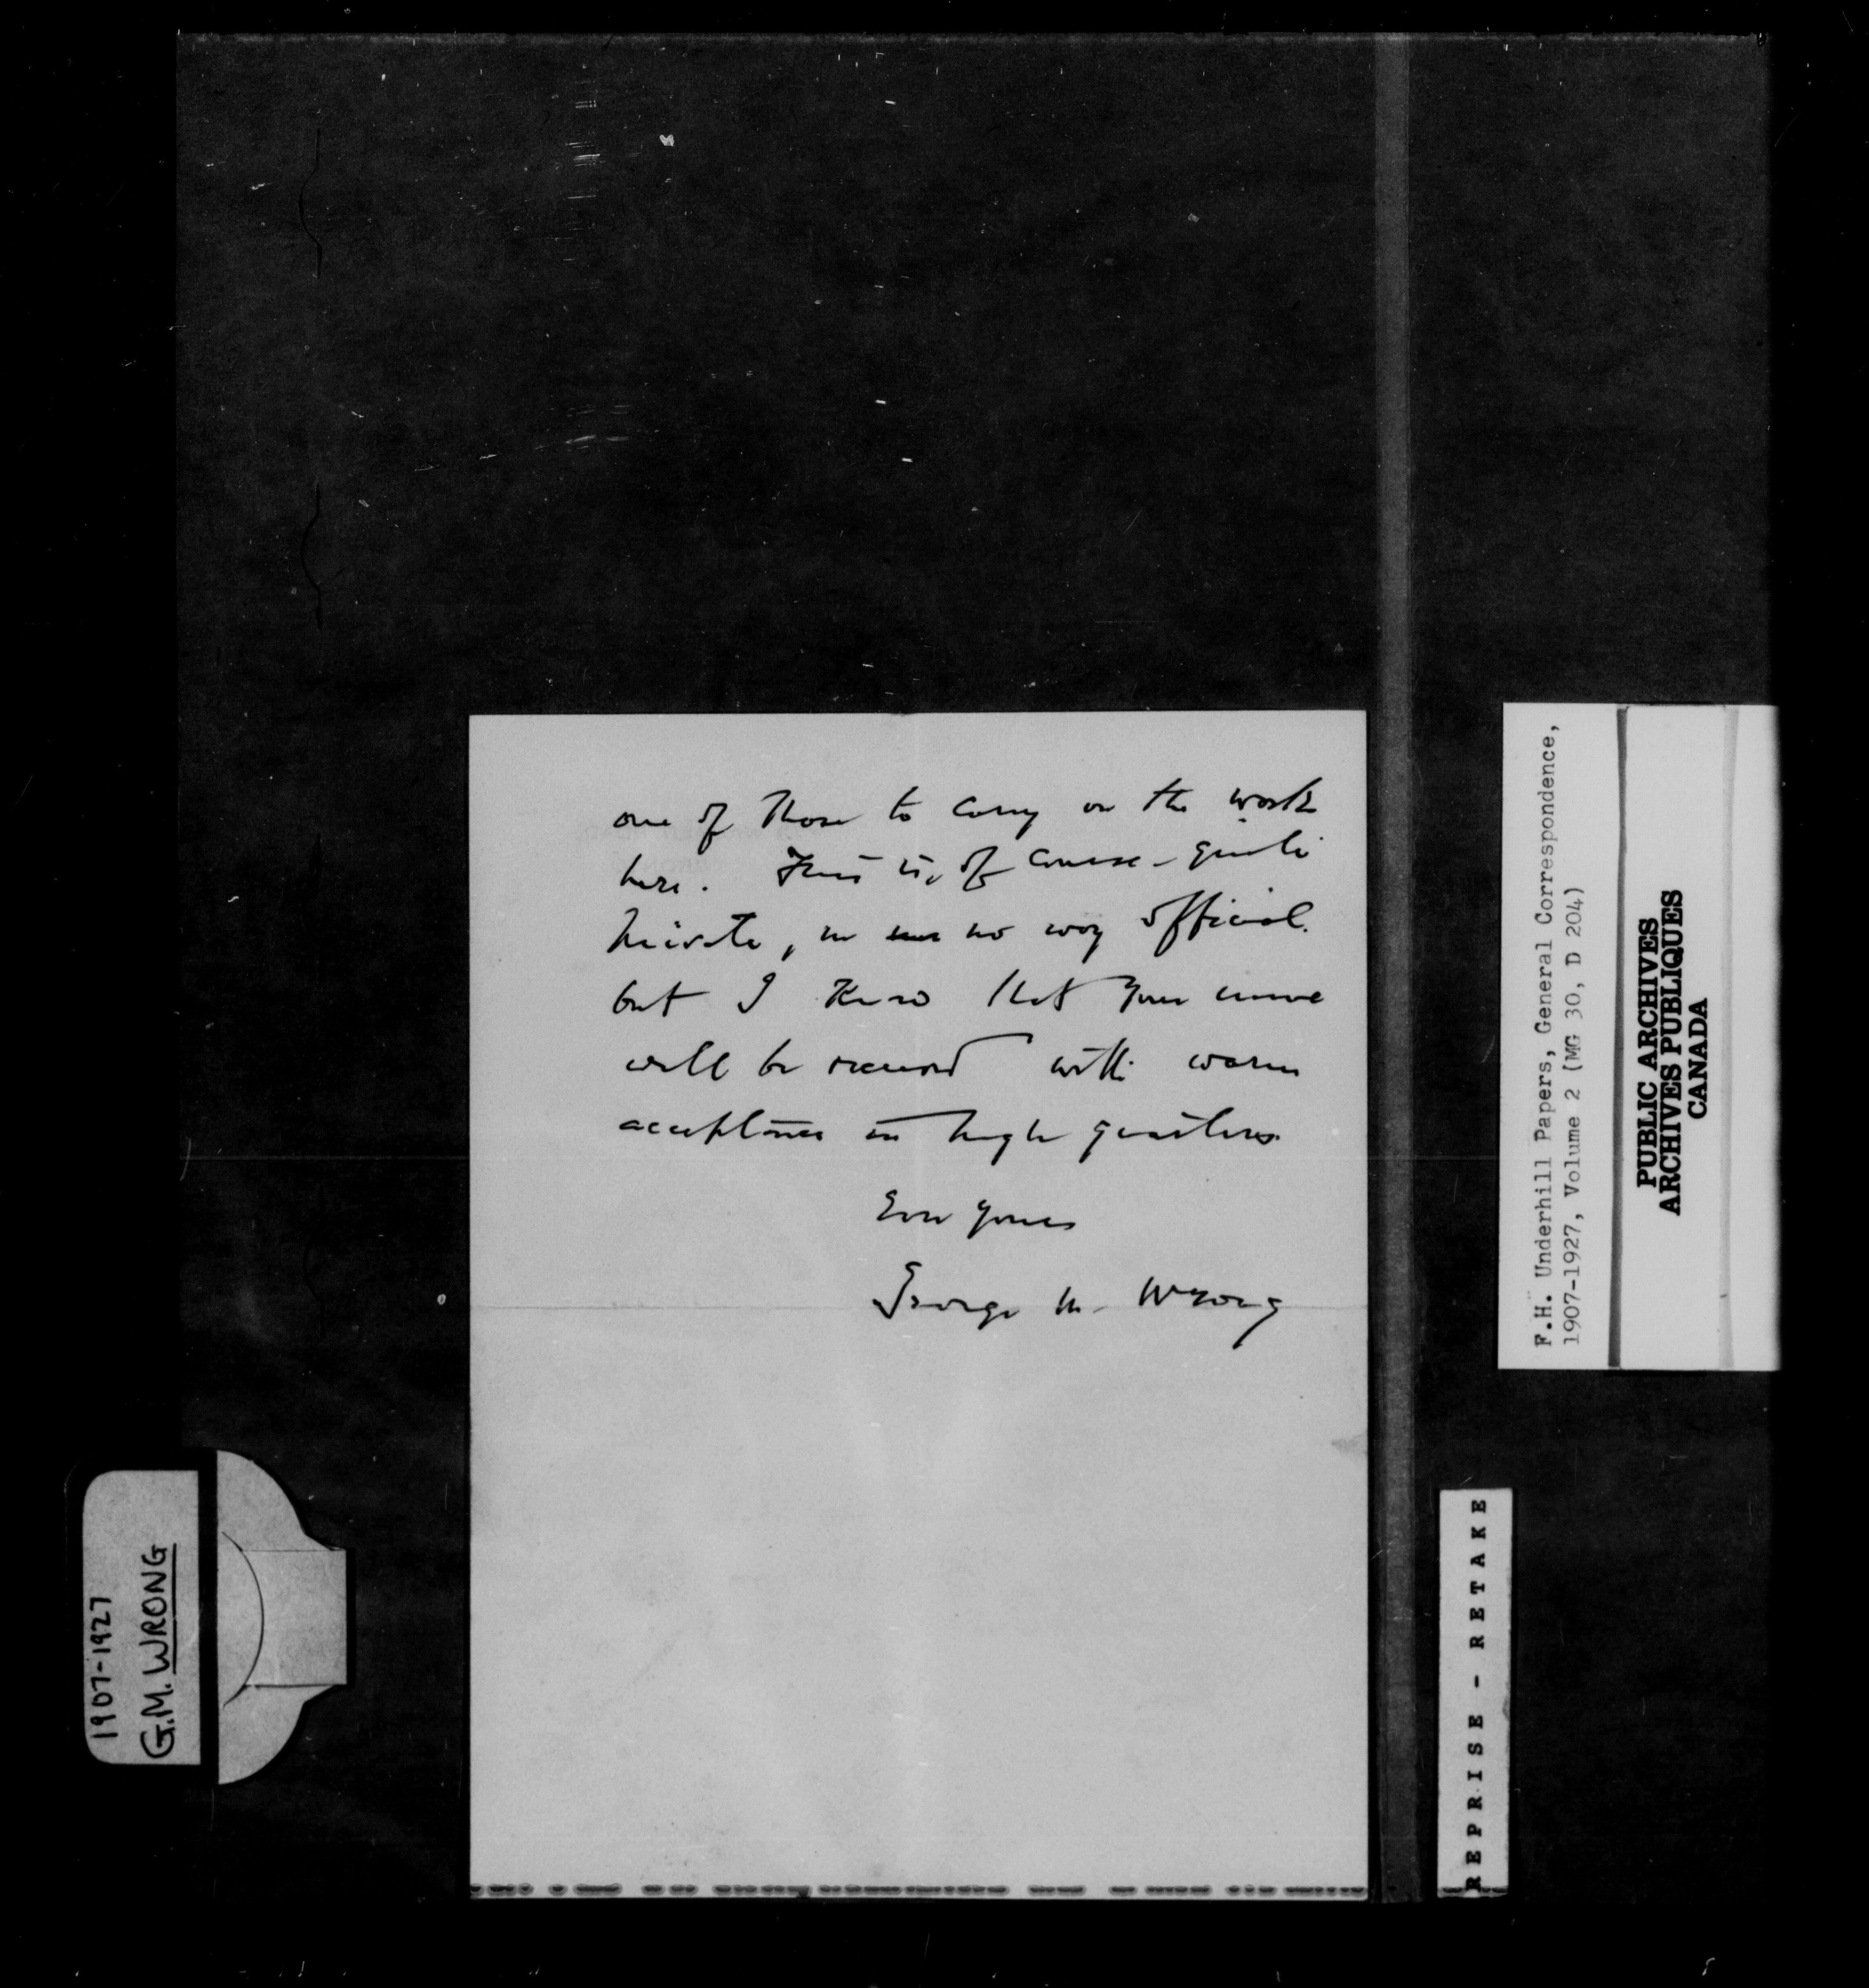 one of those to carry on the work
here. This is, of course - quite
private, in no way official.
but I know that your name
will be received with warm
acceptance in high quarters.
Ever yours
George M. Wrong
F.H. Underhill Papers, General Correspondence,
1907-1927, Volume 2 (MG 30, D 204)
PUBLIC ARCHIVES
ARCHIVES PUBLIQUES
CANADA
1907-1927
G.M. WRONG
REPRISE - RETAKE